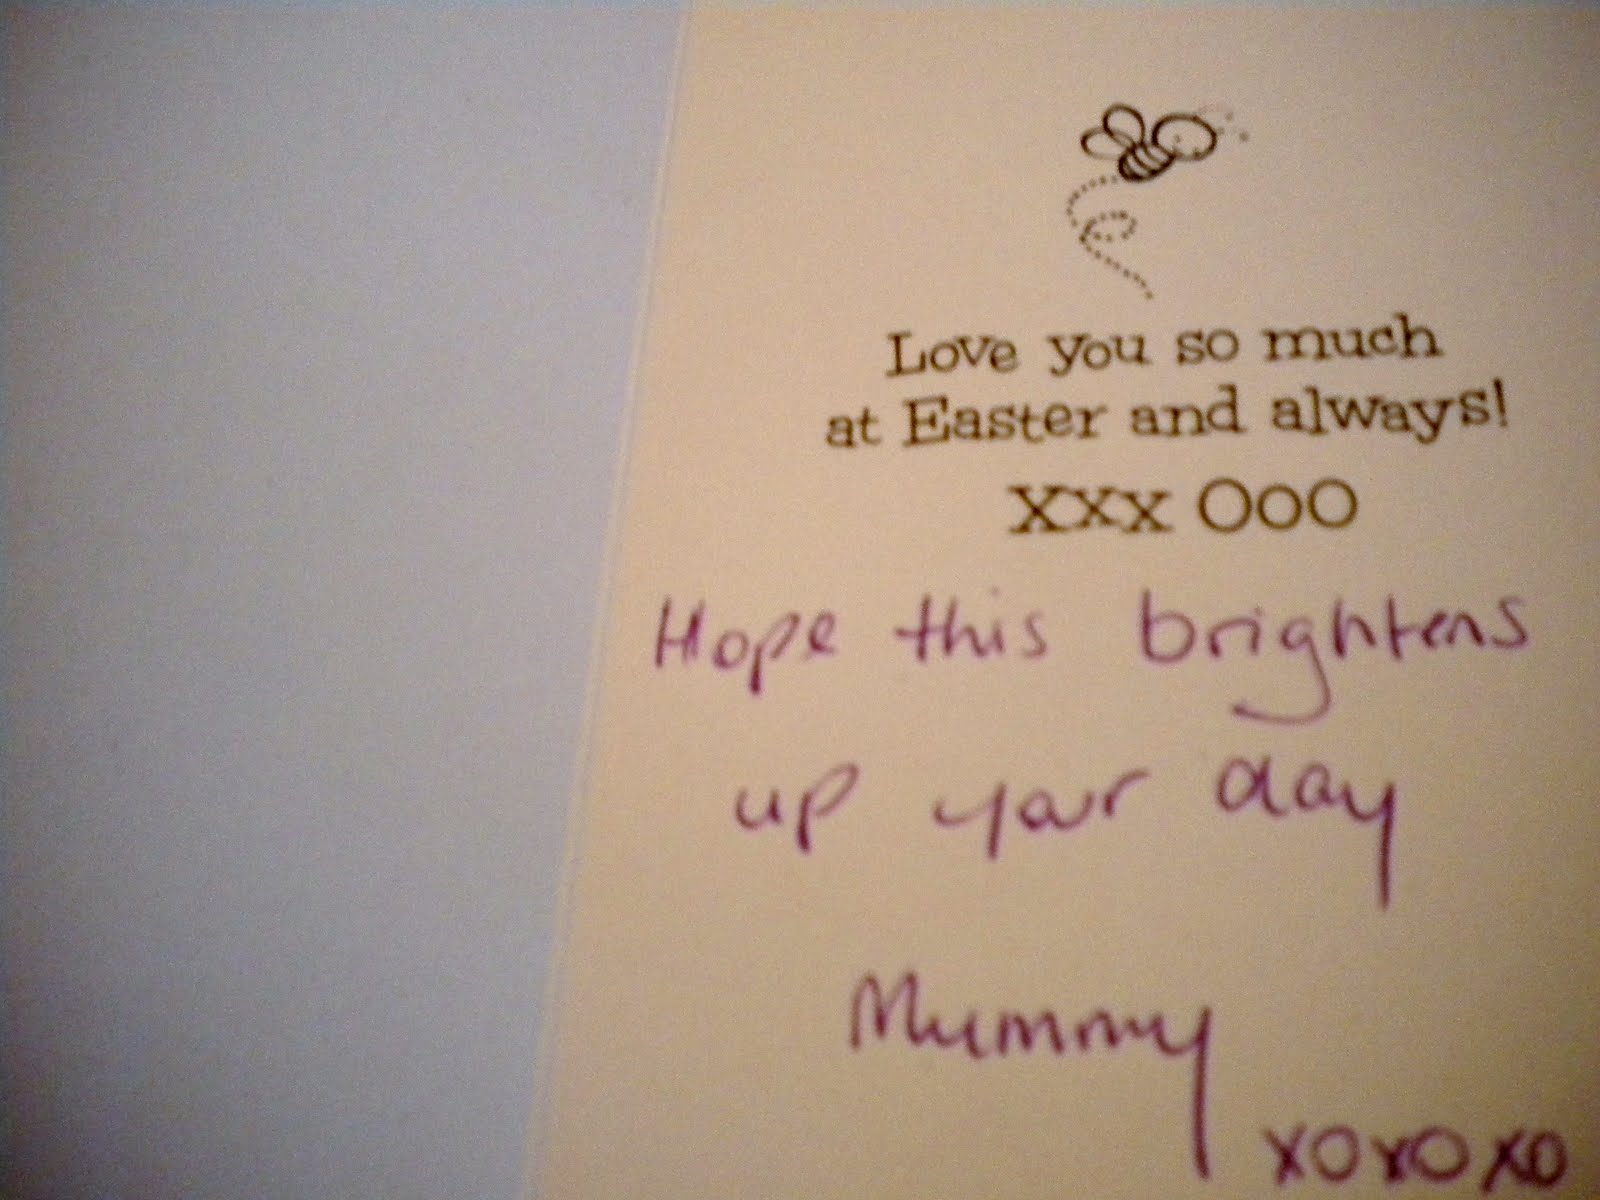 Love you so much
at Easter and always!
XXX OOO
Hope this brightens
up your day
Mummy
xoxoxo